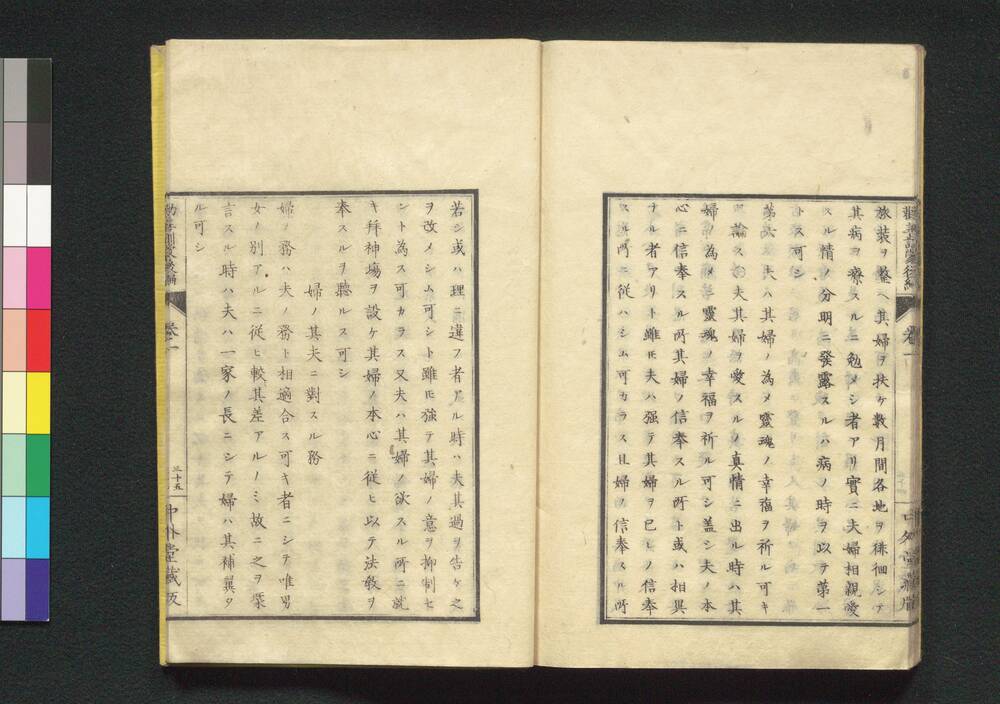 旅装ヲ整ヘ其婦ヲ扶ケ數月間各地ヲ徘徊シテ
其病ヲ療スルニ勉メシ者アリ實ニ夫婦相親愛
スル情ノ分明ニ發露スルハ病ノ時ヲ以テ第一
トス可シ
第六 夫ハ其婦ノ為メ靈魂ノ幸福ヲ祈ル可キ
論ス 夫其婦ヲ愛スルノ真情ニ出ル時ハ其
婦ノ為メ靈魂ノ幸福ヲ祈ル可シ盖シ夫ノ本
心ニ信奉スル所其婦ノ信奉スル所ト或ハ相異
ナル者アリト雖𪜈夫ハ强テ其婦ヲ已レノ信奉
スル所ニ從ハシム可カラス且婦ノ信奉スル所
若シ或ハ理ニ違フ者アル時ハ夫其過ヲ告ケ之
ヲ改メシム可シト雖𪜈强テ其婦ノ意ヲ抑制セ
ント為ス可カラス又夫ハ其婦ノ欲スル所ニ就
キ拜神場ヲ設ケ其婦ノ本心ニ從ヒ以テ法敎ヲ
奉スルヲ聽ルス可シ
婦ノ其夫ニ對スル務
婦ノ務ハ夫ノ務ト相適合ス可キ者ニシテ唯男
女ノ別アルニ從ヒ較其差アルノミ故ニ之ヲ槩
言スル時ハ夫ハ一家ノ長ニシテ婦ハ其補翼タ
ル可シ
勸善訓蒙後編
卷一
三十五
中外堂藏版